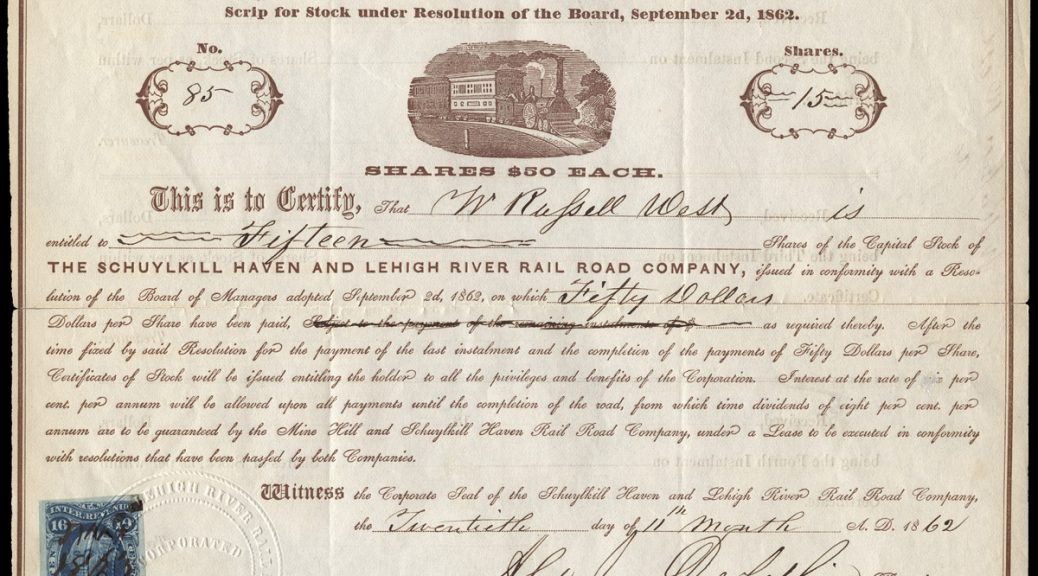 Scrip for Stock under Resolution of the Board, September 2d, 1862.
No.
85
Shares.
15
SHARES $50 EACH.
This is to Certify, That W Russell West is
entitled to Fifteen Shares of the Capital Stock of
THE SCHUYLKILL HAVEN AND LEHIGH RIVER RAIL ROAD COMPANY, issued in conformity with a Reso-
lution of the Board of Managers adopted September 2d, 1862, on which Fifty Dollars
Dollars per Share have been paid, Subject to the payment of the remaining instalments of $ as required thereby. After the
time fixed by said Resolution for the payment of the last instalment and the completion of the payments of Fifty Dollars per Share,
Certificates of Stock will be issued entitling the holder to all the privileges and benefits of the Corporation. Interest at the rate of six per
cent. per annum will be allowed upon all payments until the completion of the road, from which time dividends of eight per cent. per
annum are to be guaranteed by the Mine Hill and Schuylkill Haven Rail Road Company, under a Lease to be executed in conformity
with resolutions that have been passed by both Companies.
Witness the Corporate Seal of the Schuylkill Haven and Lehigh River Rail Road Company,
the Twentieth day of 11th Month A. D. 1862
LEHIGH RIVER RAIL
CORPORATED
INTER. REVENUE